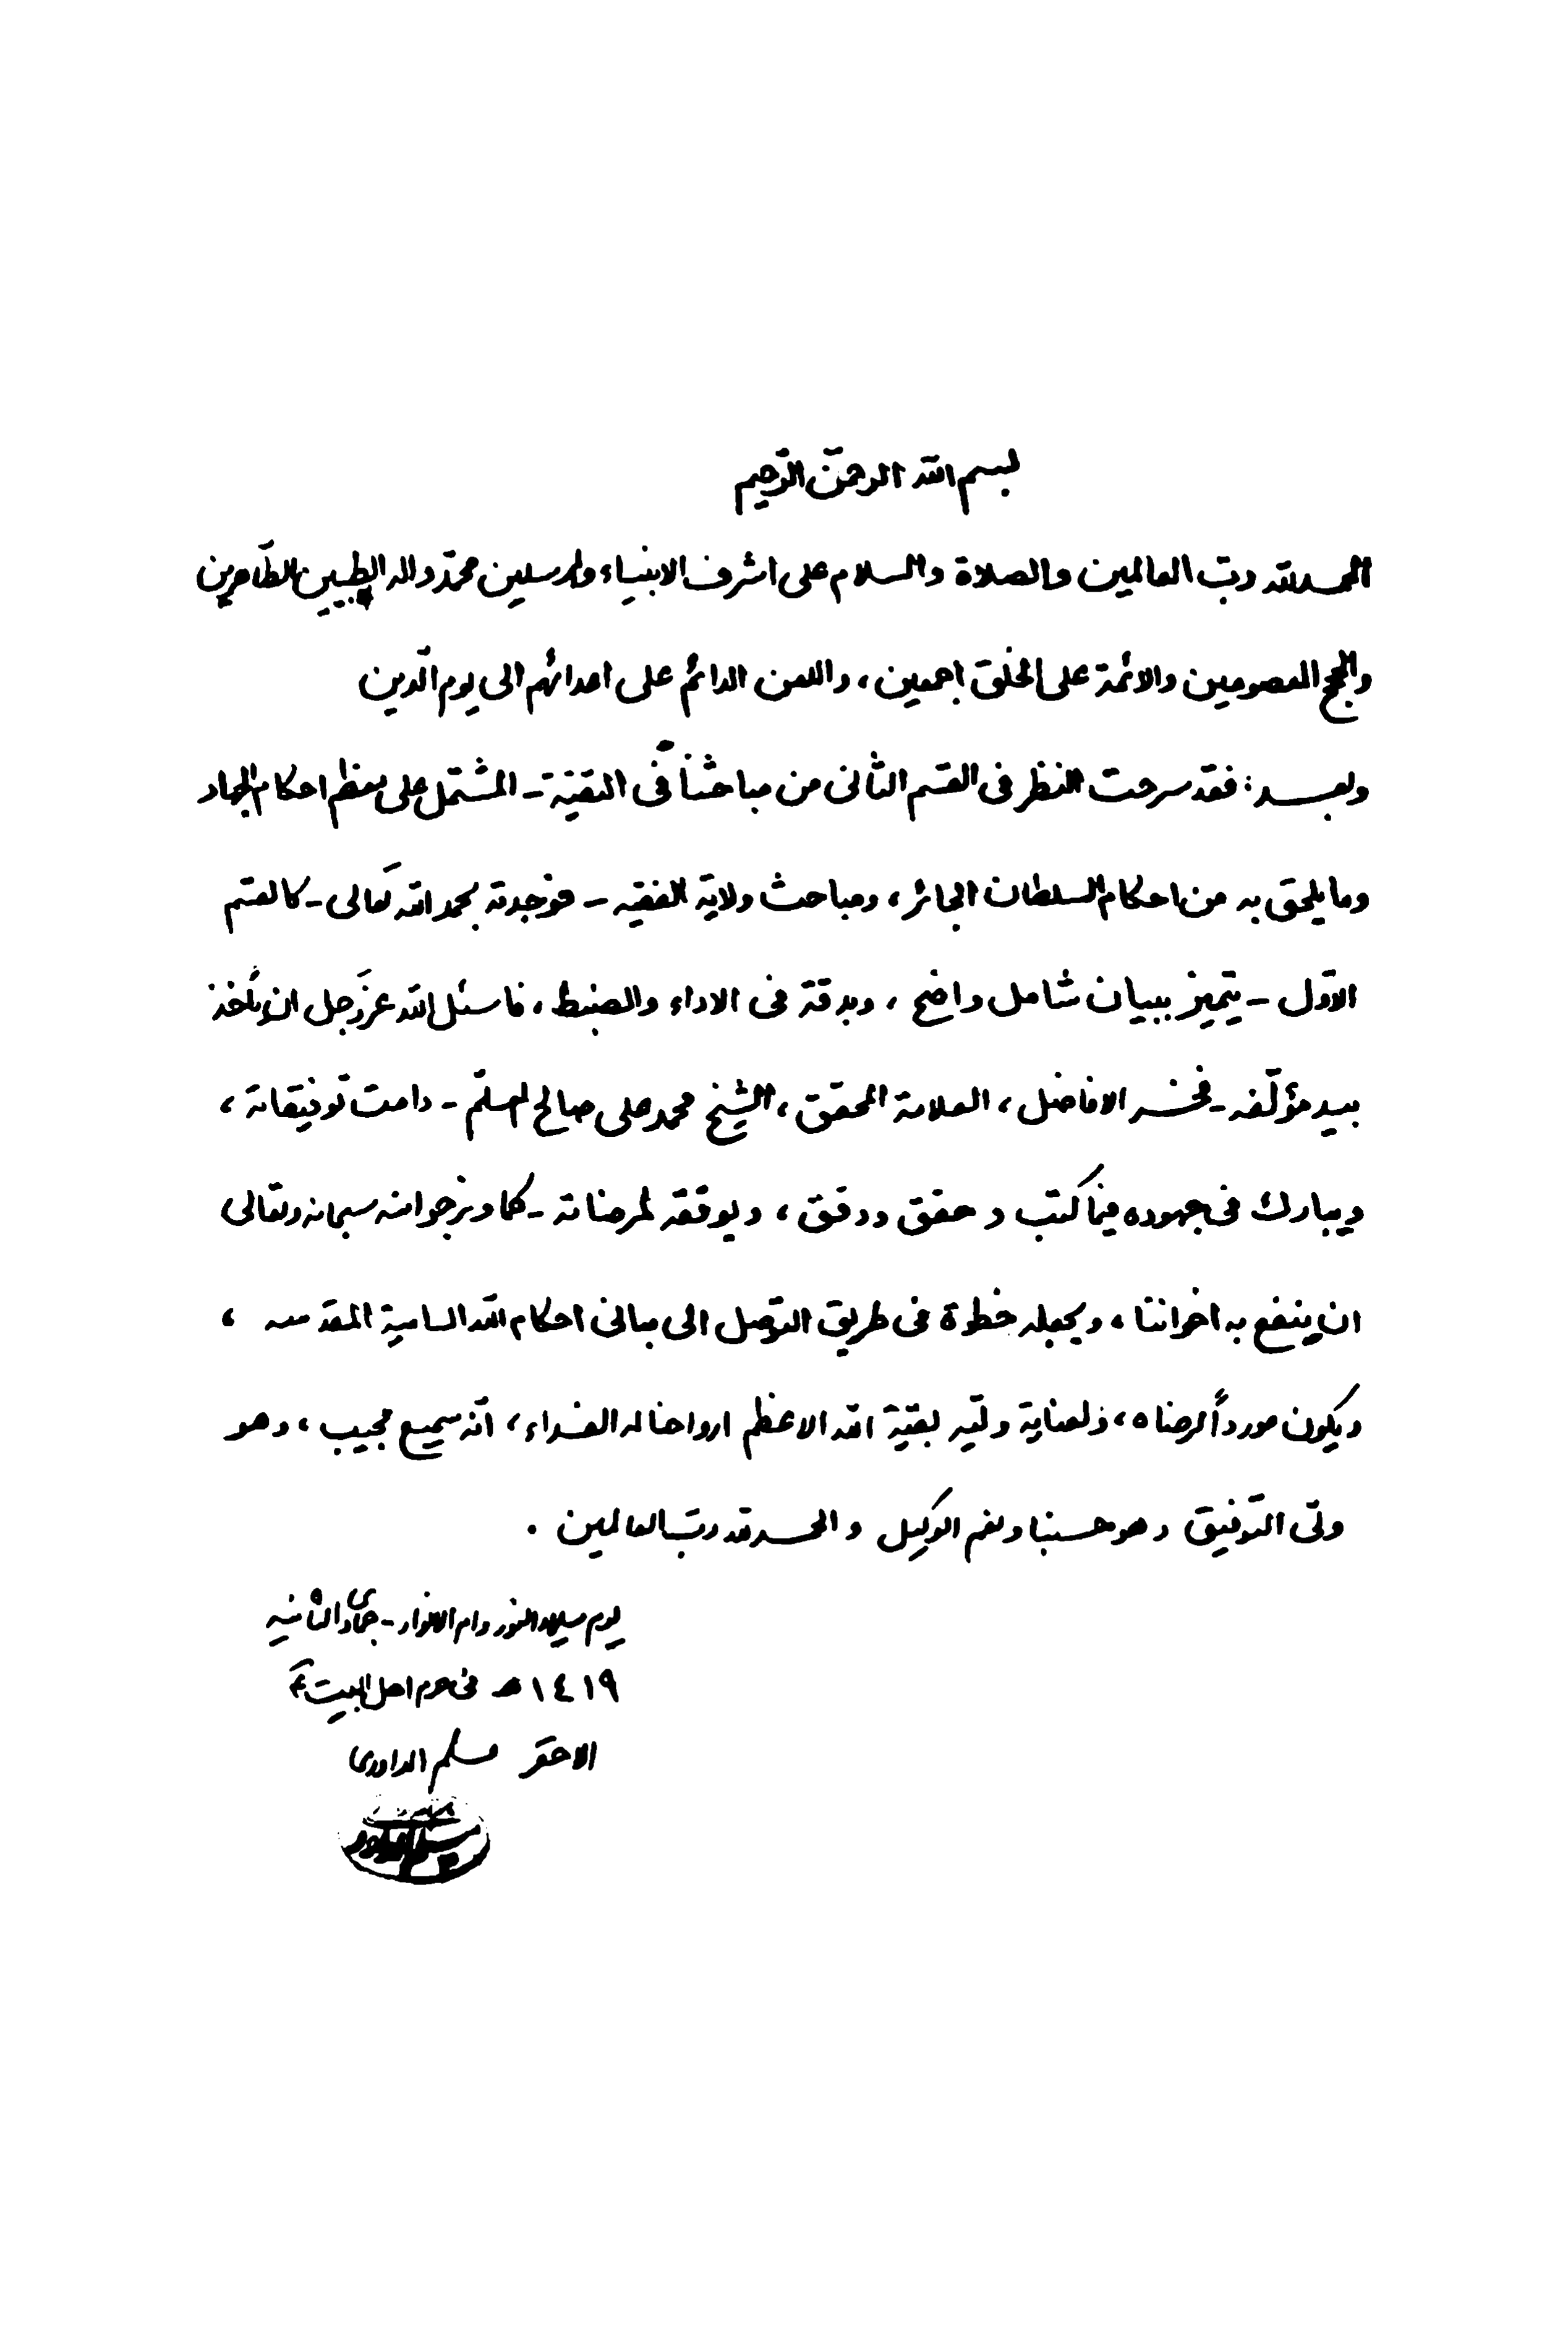 بسم الله الرحمن الرحيم
الحمد لله ربّ العالمين والصلاة والسلام على اشرف الانبياء والمرسلين محمّد واله الطيبين الطّاهرين
والحجج المعصومين والائمة على الخلق اجمعين، واللعن الدائم على اعدائهم الى يوم الدّين
وبعـــد: فقد سرحت النظر فى القسم الثانى من مباحثنا فى التقيّة - المشتمل على معظم احكام الجهاد
وما يلحق به من احكام السلطان الجائر، ومباحث ولاية الفقيه - فوجدته بحمد الله تعالى - كالقسم
الاوّل - يتميز ببيان شامل واضح، وبدقة فى الاداء والضبط، فاسئل الله عزّوجل ان يأخذ
بيد مؤلّفه - فخر الافاضل، العلامة المحقق، الشيخ محمد على صالح المعلّم - دامت توفيقاته،
ويبارك فى جهوده فيما كتب وحقق ودقق، ويوفقه لمرضاته - كما ونرجوا منه سبحانه وتعالى
ان ينفع به اخواننا، ويجعله خطوة فى طريق التوصل الى مبانى احكام الله السامية المقدسه،
ويكون مورداً لرضاه، ولعناية وليّه بقيّة الله الاعظم ارواحنا له الفداء، انّه سميع مجيب، وهو
ولىّ التوفيق وهو حسبنا ونعم الوكيل والحمد لله ربّ العالمين .
يوم ميلاد النور وام الانوار - جمادى الثانيه
١٤١٩ هـ فى حرم اهل البيت ع
الاحقر مسلم الداورى